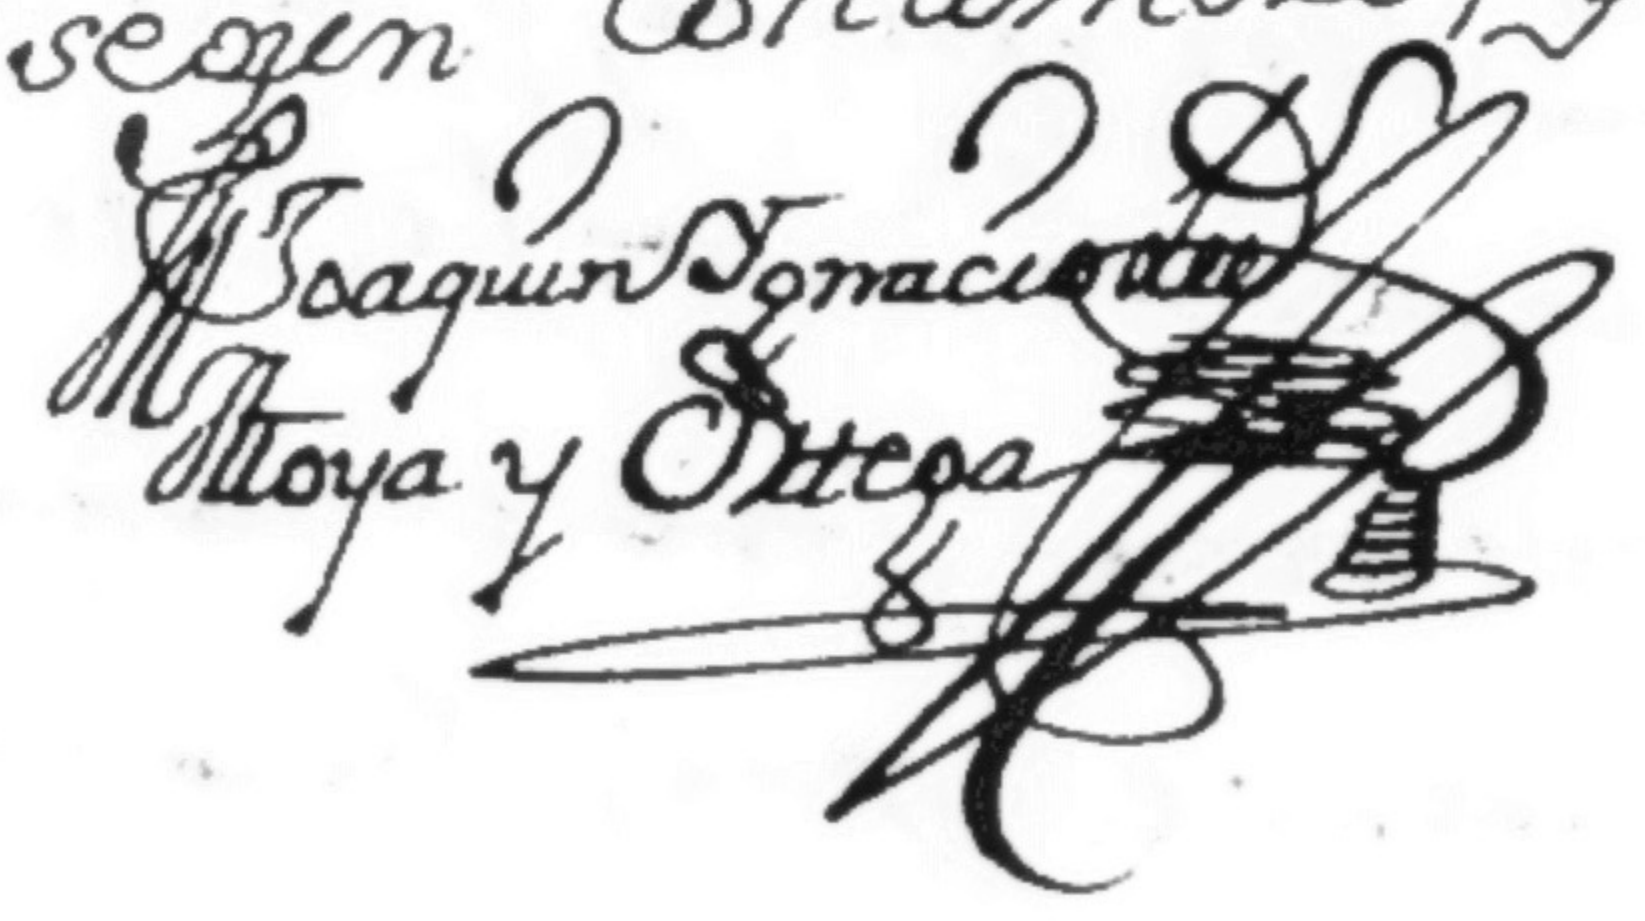 segun
Joaquin Ignacio de
Moya y Ortega